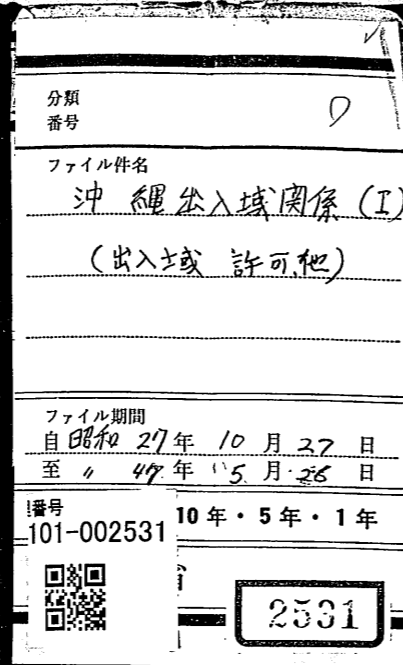 分類
番号
ファイル件名
沖縄出入域関係(I)
(出入域 許可、他)
ファイル期間
自 昭和 27年 10月 27日
至 〃 47年 5月 26日
番号
101-002531
10年・5年・1年
2531